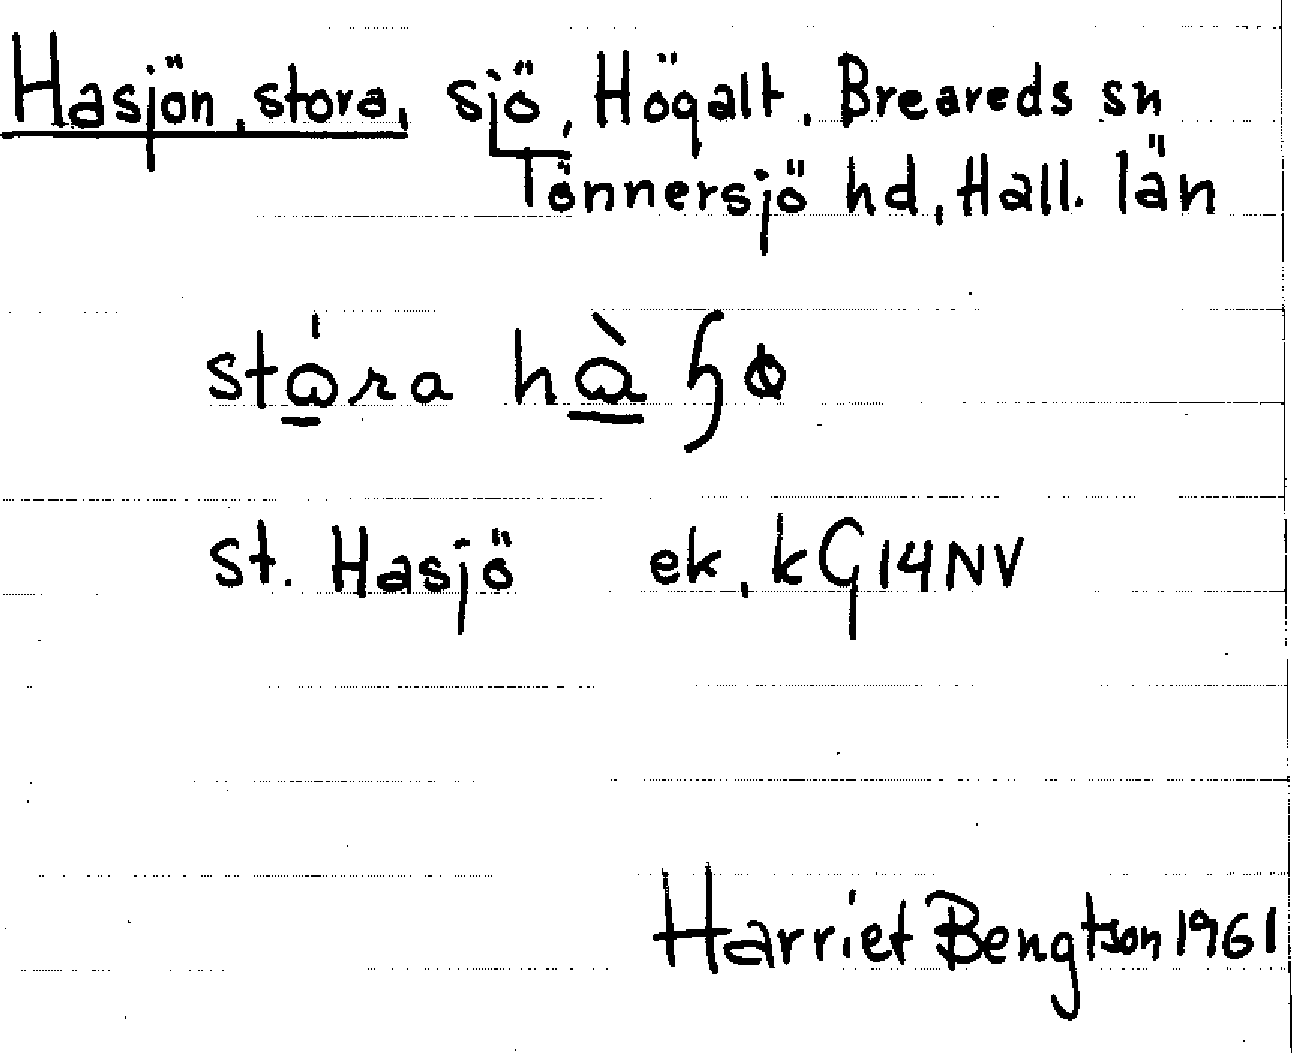 Hasjön, stora, sjö, Högalt, Breareds sn
Tönnersjö hd, Hall. län
stó̱ra hà̱ɧø
st. Hasjö ek, kG14NV
Harriet Bengtson 1961